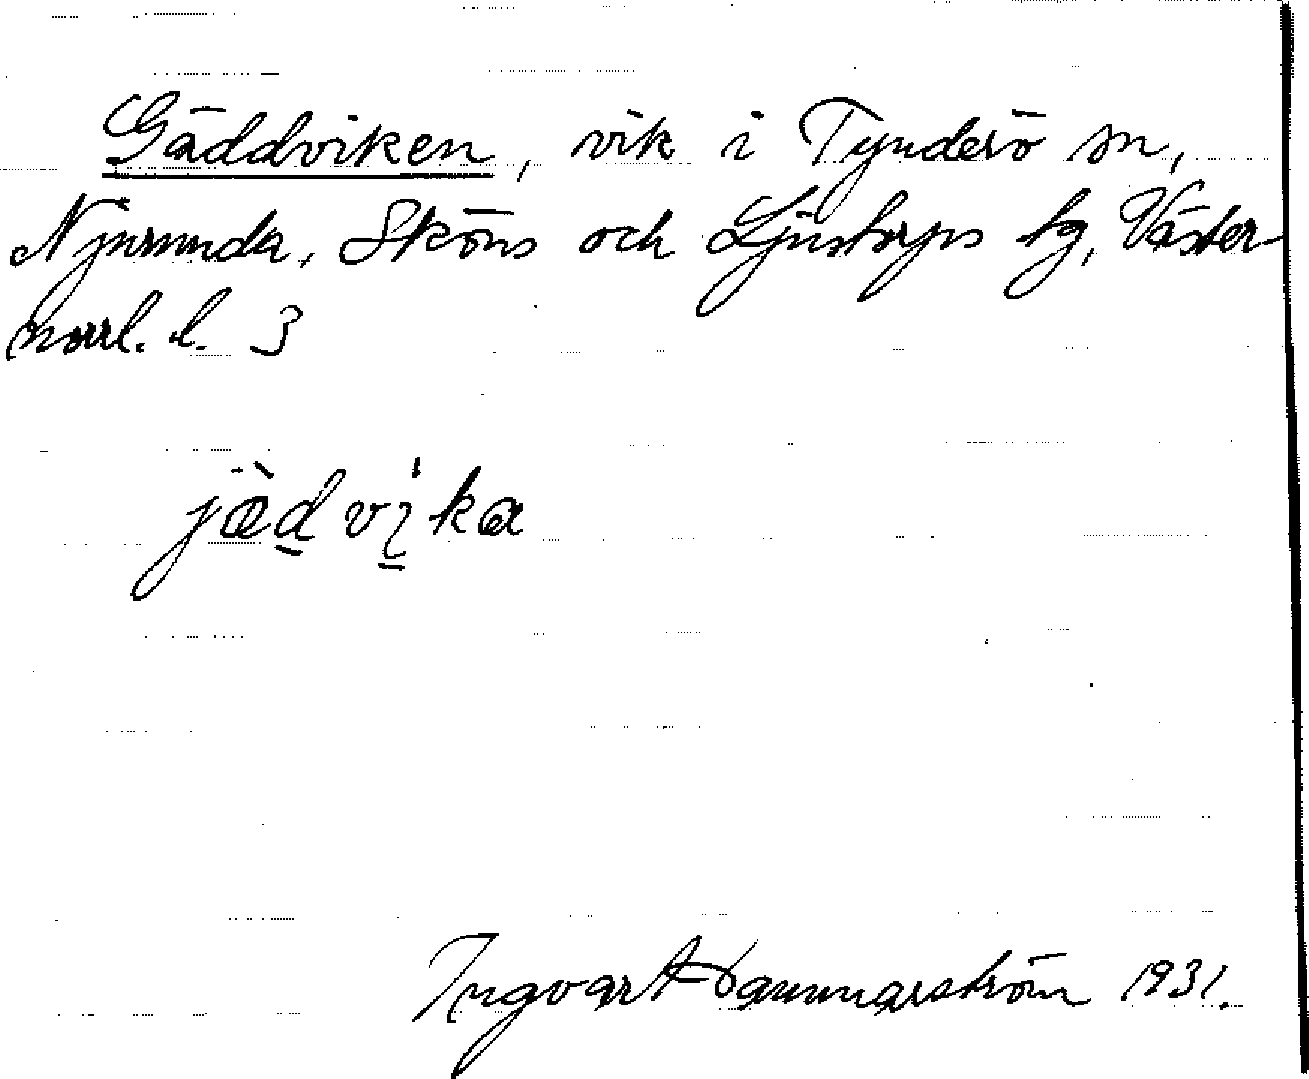 Gäddviken, vik i Tynderö sn,
Njurunda, Sköns och Ljustorps tg, Väster-
norrl. l. 3
jæ̀dvìka
Ingvar Hammarström 1931.